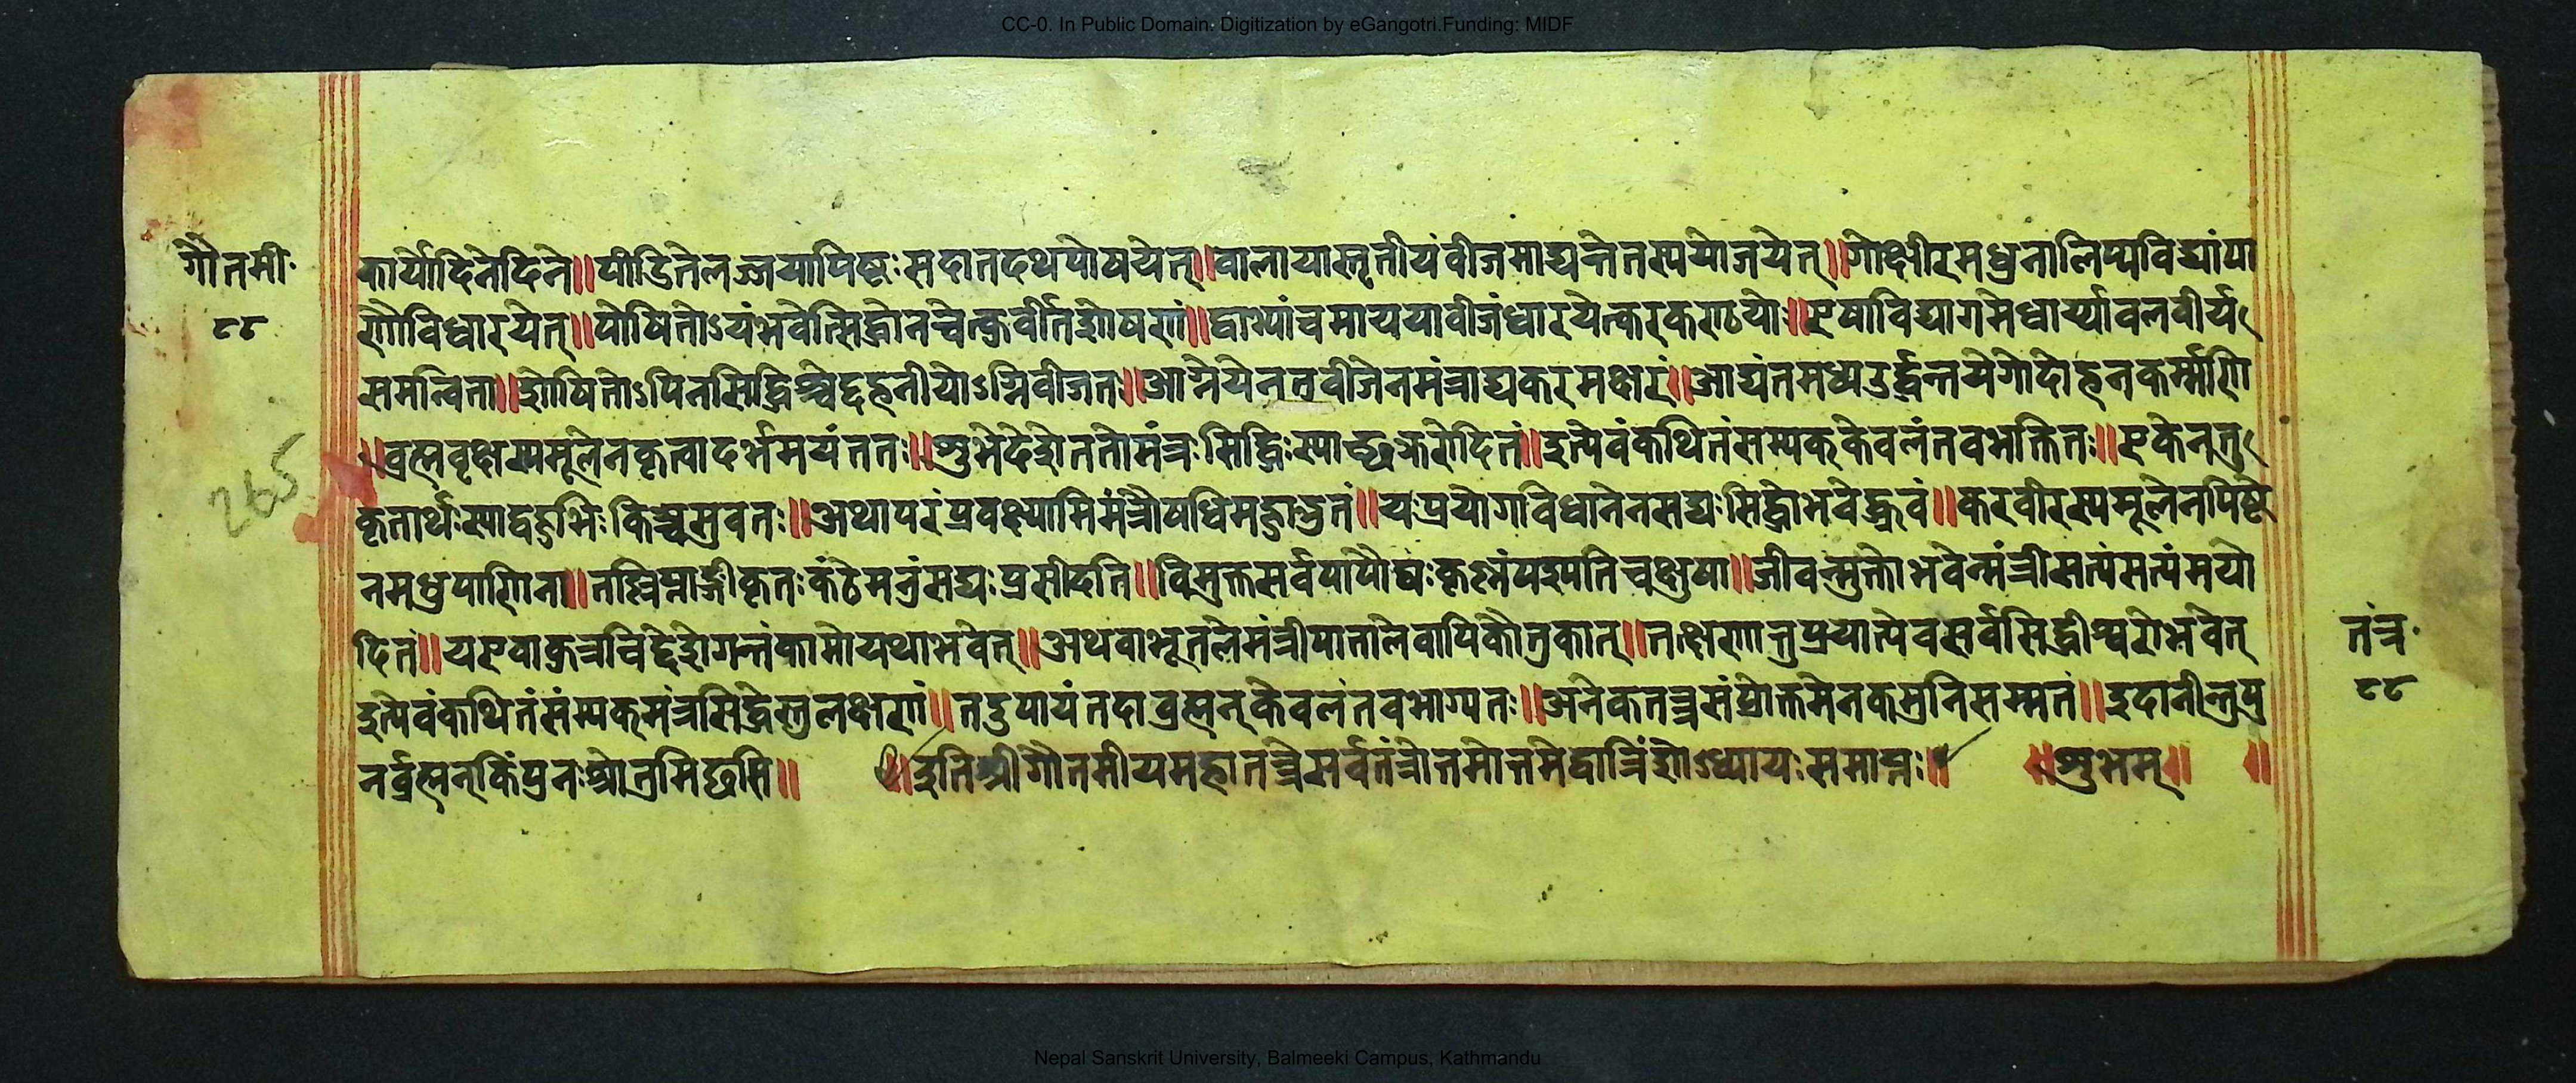 CC-0. In Public Domain. Digitization by eGangotri.Funding: MIDF
गौतमी॰
८८
265
कार्योदिनेदिने॥पीडितेलज्जयापिष्टःसदातदथपोषयेत्॥वालायास्तृतीयंवीजमाद्यन्तेतस्ययोजयेत्॥गोक्षीरमधुनालिप्यविद्यांपा
णौविधारयेत्॥पोषितोऽयंभवेत्सिद्धोनचेत्कुर्वीतशोषणं॥द्वाभ्यांचमाययावीजंधारयेत्करकण्ठयोः॥एषाविद्यागमेधार्य्यावलवीर्य
समन्विता॥शोषितोऽपिनसिद्धिश्चेद्दहनीयोऽग्निवीजतः॥आग्नेयेनतुवीजेनमंत्राद्यकरमक्षरं॥आद्यंतमध्यउर्द्धन्तयेगोदोहनकर्म्माणि
॥व्रह्मवृक्षस्यमूलेनकृत्वादर्भमयंततः॥शुभेदेशेततोमंत्रःसिद्धिःस्याच्छङ्करोदितं॥इत्येवंकथितंसम्यक्केवलंतवभक्तितः॥एकेनतु
कृतार्थःस्याद्वहुभिःकिञ्चसुवत॥अथापरंप्रवक्ष्यामिमंत्रौषधिमद्भुतं॥यःप्रयोगाविधानेनसद्यःसिद्धोभवेद्ध्रुवं॥करवीरस्यमूलेनपिष्टे
नमधुपाणिना॥कृतःकंठेमनुंसद्यःप्रसीदति॥विमुक्तसर्वपापौघःकृष्णंपश्यतिचक्षुषा॥जीवन्मुक्तोभवेन्मंत्रीसत्यंसत्यंमयो
दितं॥यएवाकुत्रचिद्देशेगन्तंकामोयथाभवेत्॥अथवाभूतलेमंत्रीपातालेवापिकौतुकात्॥तक्षणात्तुप्रयात्येवसर्वसिद्धीश्वरोभवेत्
इत्येवंकथितंसंम्यक्मंत्रसिद्धेस्तुलक्षणं॥तदुपायंतदाव्रह्मन्केवलंतवभाग्यतः॥अनेकतन्त्रसंप्रोक्तमेनकमुनिसम्मतं॥इदानीन्तुपु
नर्व्रह्मन्किंपुनःश्रोतुमिछसि॥ ॥इतिश्रीगौतमीयमहातन्त्रेसर्वतंत्रोत्तमोत्तमेद्वात्रिंशोऽध्यायःसमाप्तः॥ ॥शुभम्॥ ॥
तंत्र॰
८८
Nepal Sanskrit University, Balmeeki Campus, Kathmandu